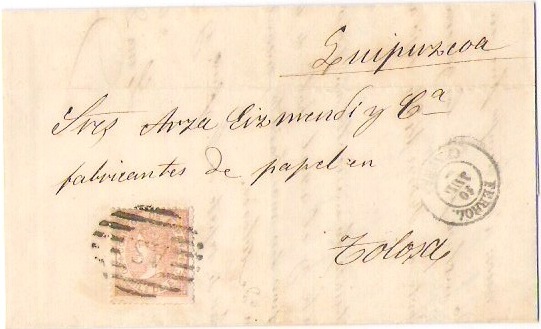 Guipuzcoa
Sres Arza Eizmendi y Cª
fabricantes de papel en
Tolosa
FERROL
10
JUL